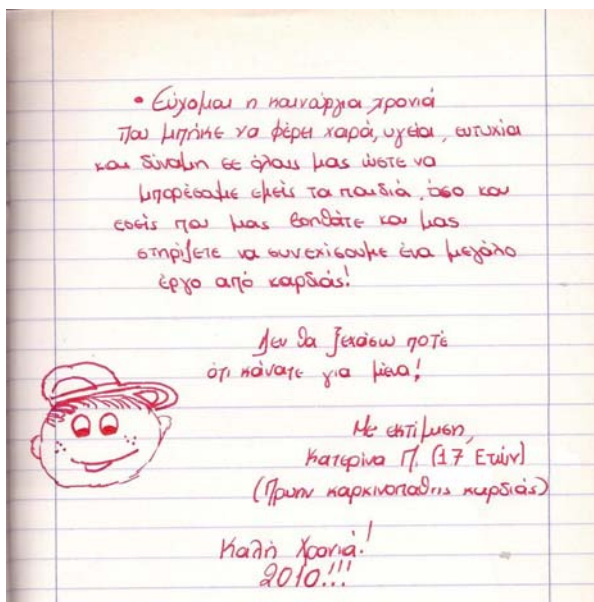 • Εύχομαι η καινούργια χρονιά
που μπήκε να φέρει χαρά, υγεία, ευτυχία
και δύναμη σε όλους μας ώστε να
μπορέσουμε εμείς τα παιδιά, όσο και
εσείς που μας βοηθάτε και μας
στηρίζετε να συνεχίσουμε ένα μεγάλο
έργο από καρδιάς!
Δεν θα ξεχάσω ποτέ
ότι κάνατε για μένα!
Με εκτίμηση,
Κατερίνα Π. (17 Ετών)
(Πρώην καρκινοπαθής καρδιάς)
Καλή Χρονιά!
2010!!!